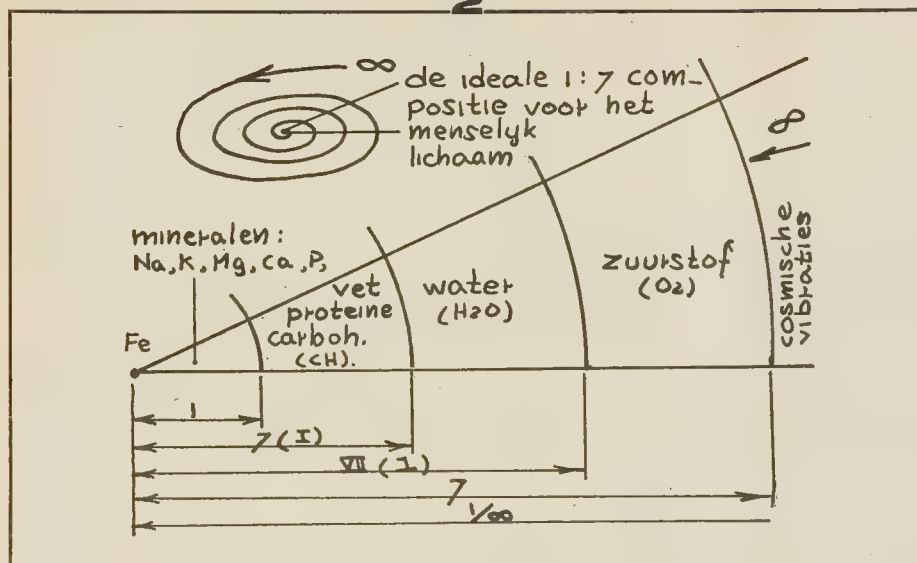 2
∞
de ideale 1:7 com-
positie voor het
menselyk
lichaam
∞
mineralen:
Na, K, Mg, Ca, P,
vet
proteine
carboh.
(CH).
water
(H2O)
zuurstof
(O2)
cosmische
vibraties
Fe
1
7 (I)
VII (1)
7
1/∞